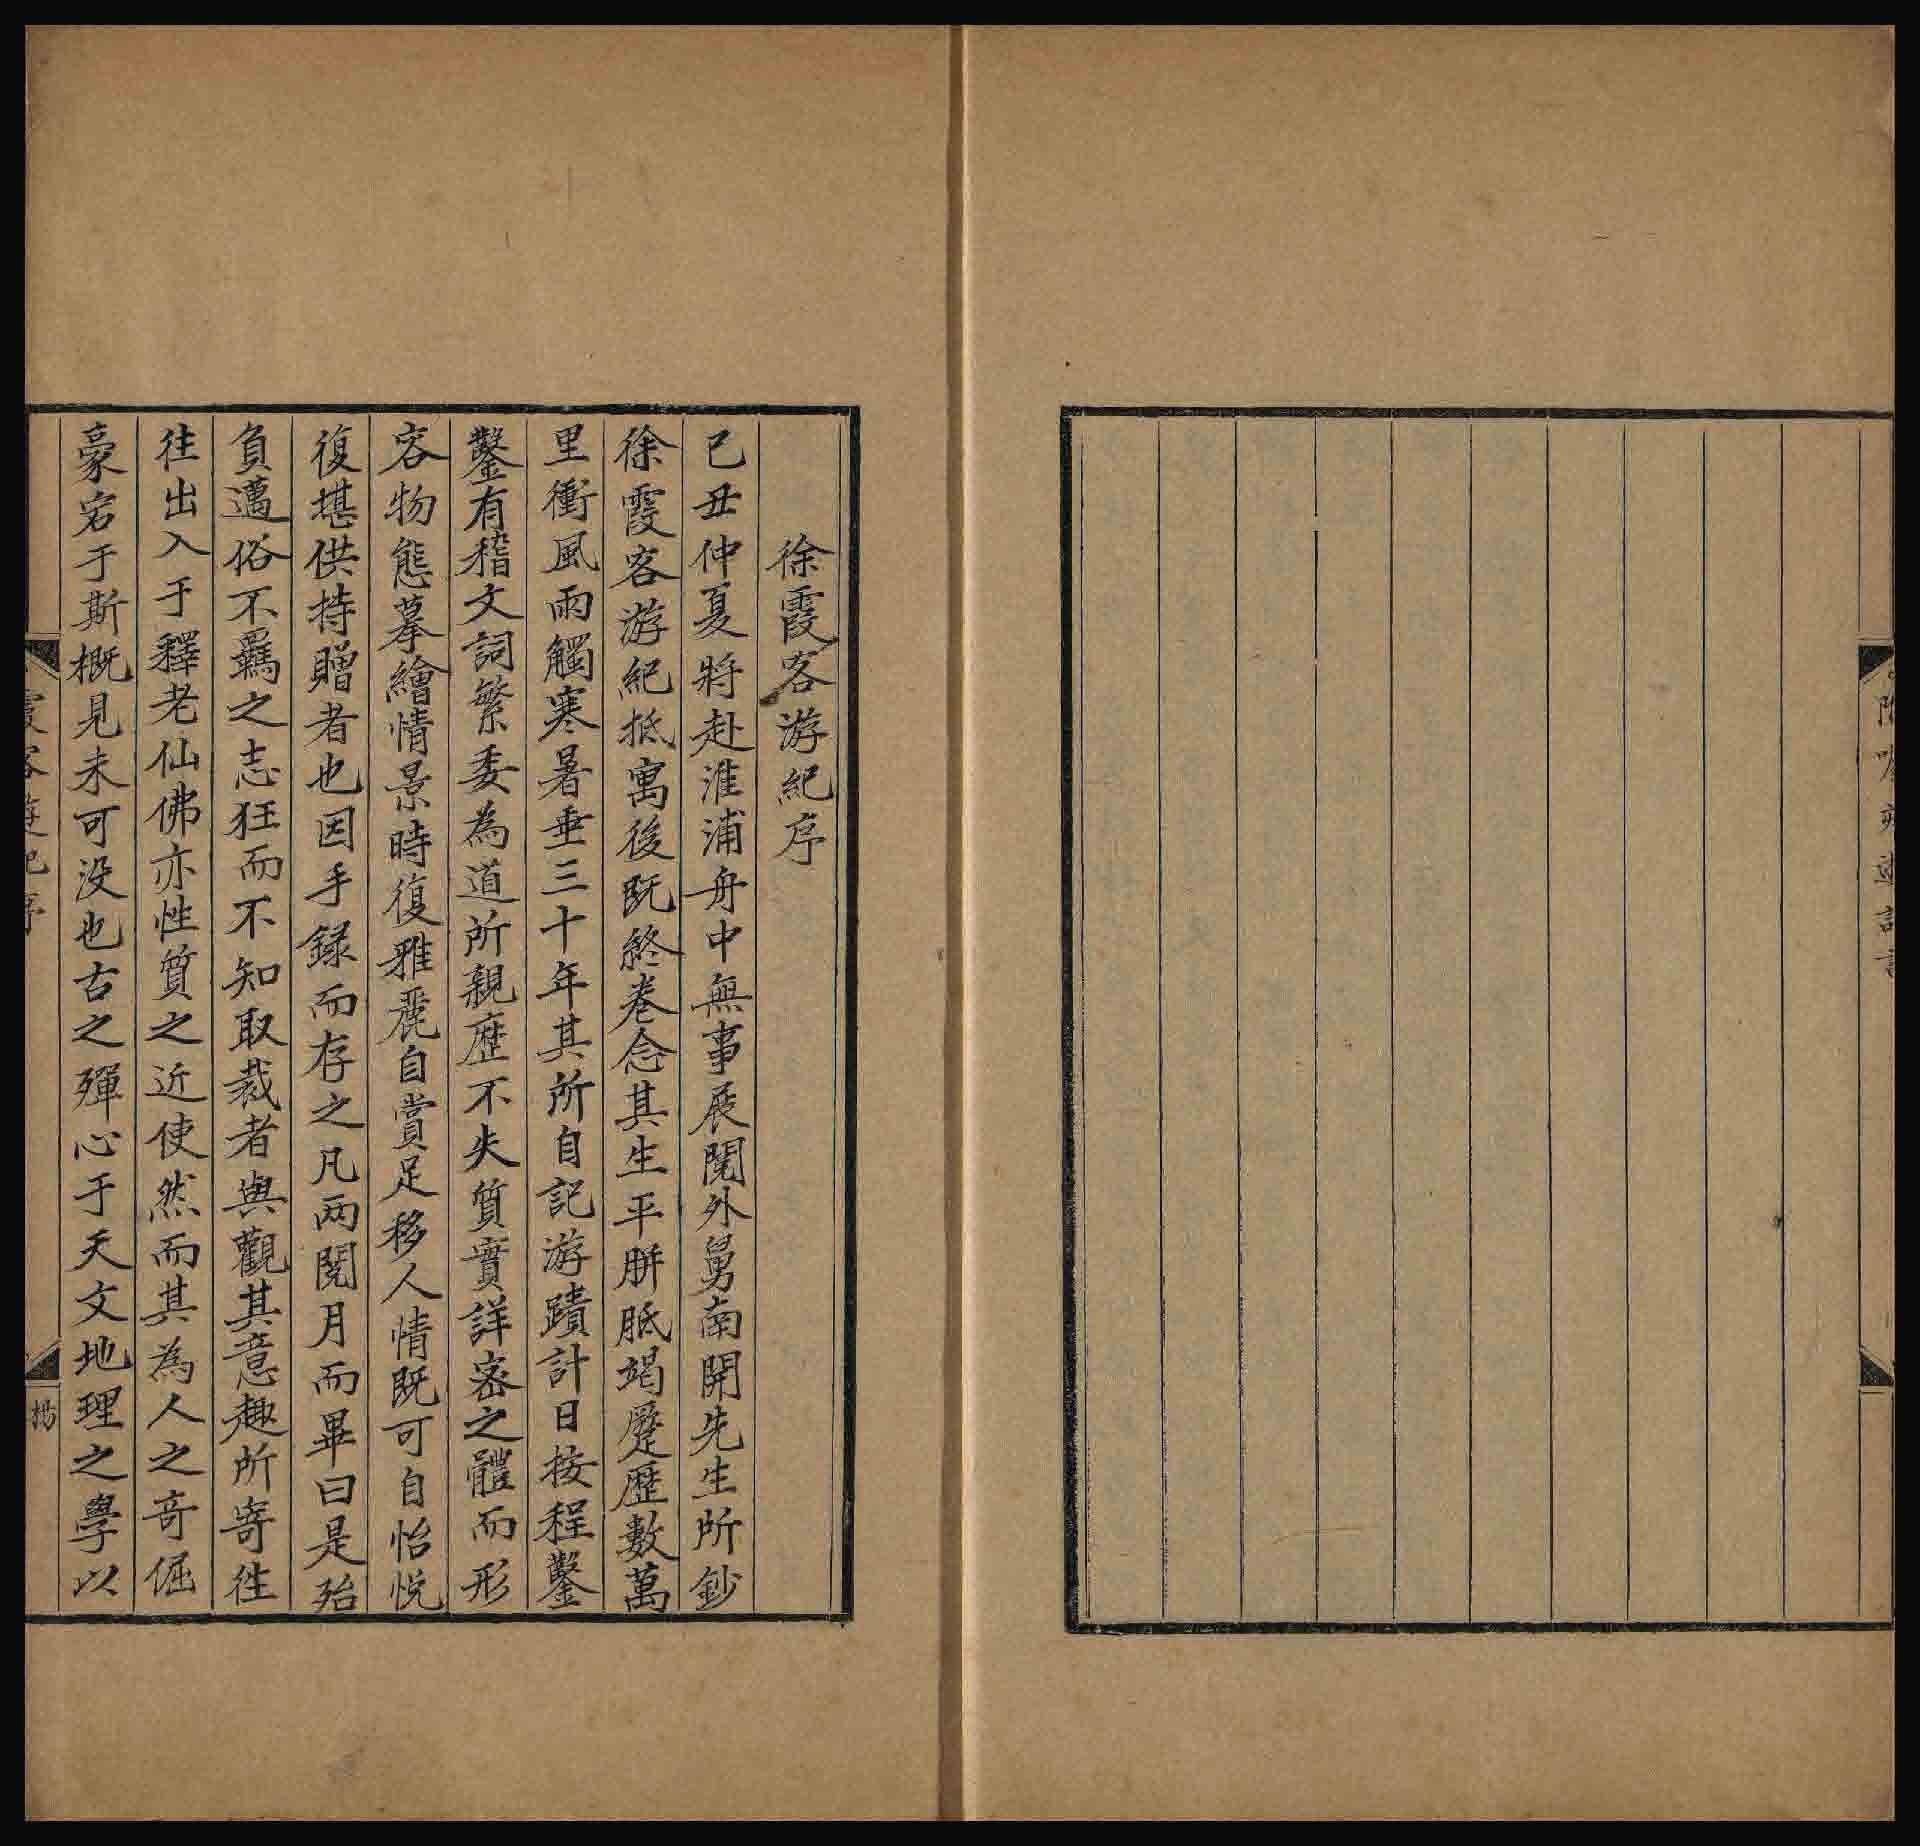 徐霞客游紀序
已丑仲夏將赴淮浦舟中無事展閱外舅南開先生所鈔
徐霞客游紀抵寓後既終卷念其生平胼胝竭蹷歷數萬
里衝風雨觸寒暑垂三十年其所自記游蹟計日按程鑿
鑿有稽文詞繁委為道所親歷不失質實詳密之體而形
容物態摹繪情景時復雅麗自賞足移人情既可自怡悅
復堪供持贈者也因手録而存之凡兩閱月而畢曰是殆
負邁俗不羈之志狂而不知取裁者與觀其意趣所寄徃
往出入于釋老仙佛亦性質之近使然而其為人之奇倔
豪宕于斯概見未可没也古之殫心于天文地理之學以
霞客遊記序
楊